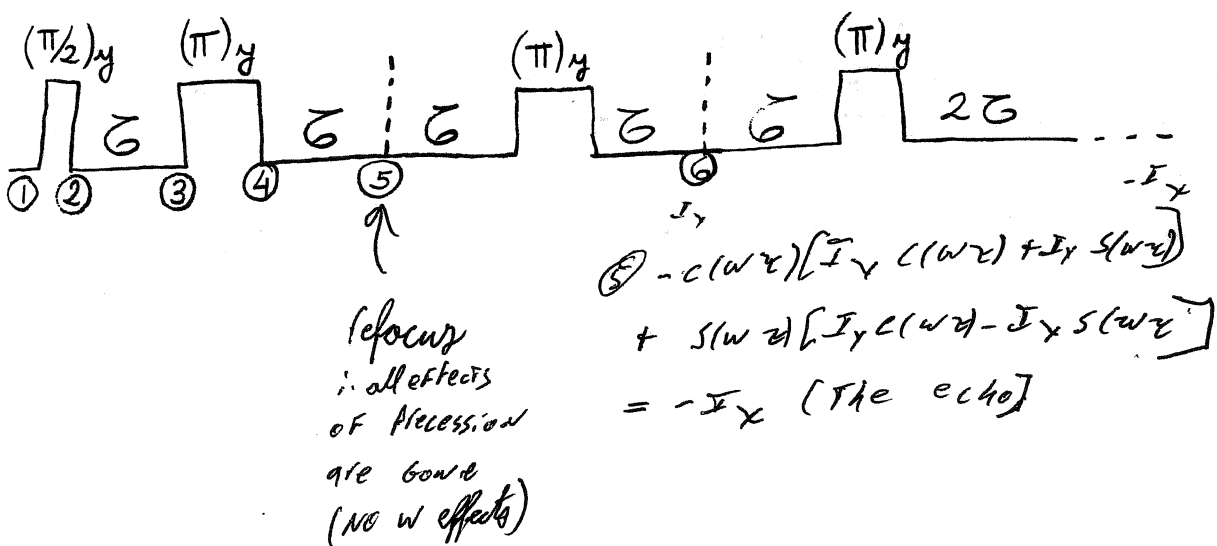 (π/2)y (π)y (π)y (π)y
τ τ τ τ τ 2τ
① ② ③ ④ ⑤ ⑥
Ix -Ix
⑤ -c(ωτ)[Ix c(ωτ) + Iy s(ωτ)]
+ s(ωτ)[Iy c(ωτ) - Ix s(ωτ]
= -Ix (The echo]
refocus
∴ all effects
of precession
are gone
(NO ω effects)